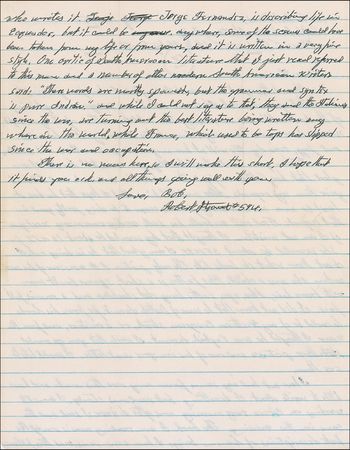 who wrote it Jorge Fernandez, is describing life in
Ecquador, but it could be anywhere, some of the scenes could have
been taken from my life or from yours, and it is written in a very fine
style. One critic of South American literature that I just read referred
to this man and a number of other modern South American writers
said: "There words are mostly spanish, but the grammar and syntex
is pure Indian" and while I could not say as to that, they and the Italians
since the war, are turning out the best literature being written any
where in the world, while France, which used to be tops has slipped
since the war and occupation.
There is no news here, so I will make this short, I hope that
it finds you and all things going well with you.
Love, Bob,
Robert Stroud #594.